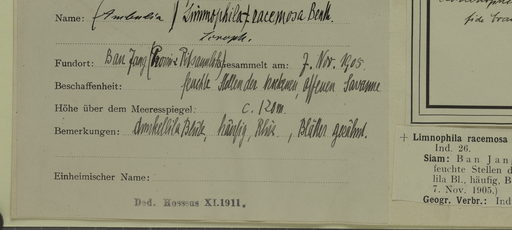 Name: (Ambulia) Limnophila racemosa Benth.
Scroph.
Fundort: Ban Jang (Provinz Pitsanulok) gesammelt am: 7. Nov. 1905
Beschaffenheit: feuchte Stellen der trockenen, offenen Savanne
Höhe über dem Meeresspiegel: c. 120 m
Bemerkungen: dunkellila Blüte, häufig, , Blätter gezähnt.
Einheimischer Name:
Ded. Hosseus XI.1911.
fide
+ Limnophila racemosa
Ind. 26.
Siam: Ban Jan
feuchte Stellen d
lila Bl., häufig, B
7. Nov. 1905.)
Geogr. Verbr.: Ind